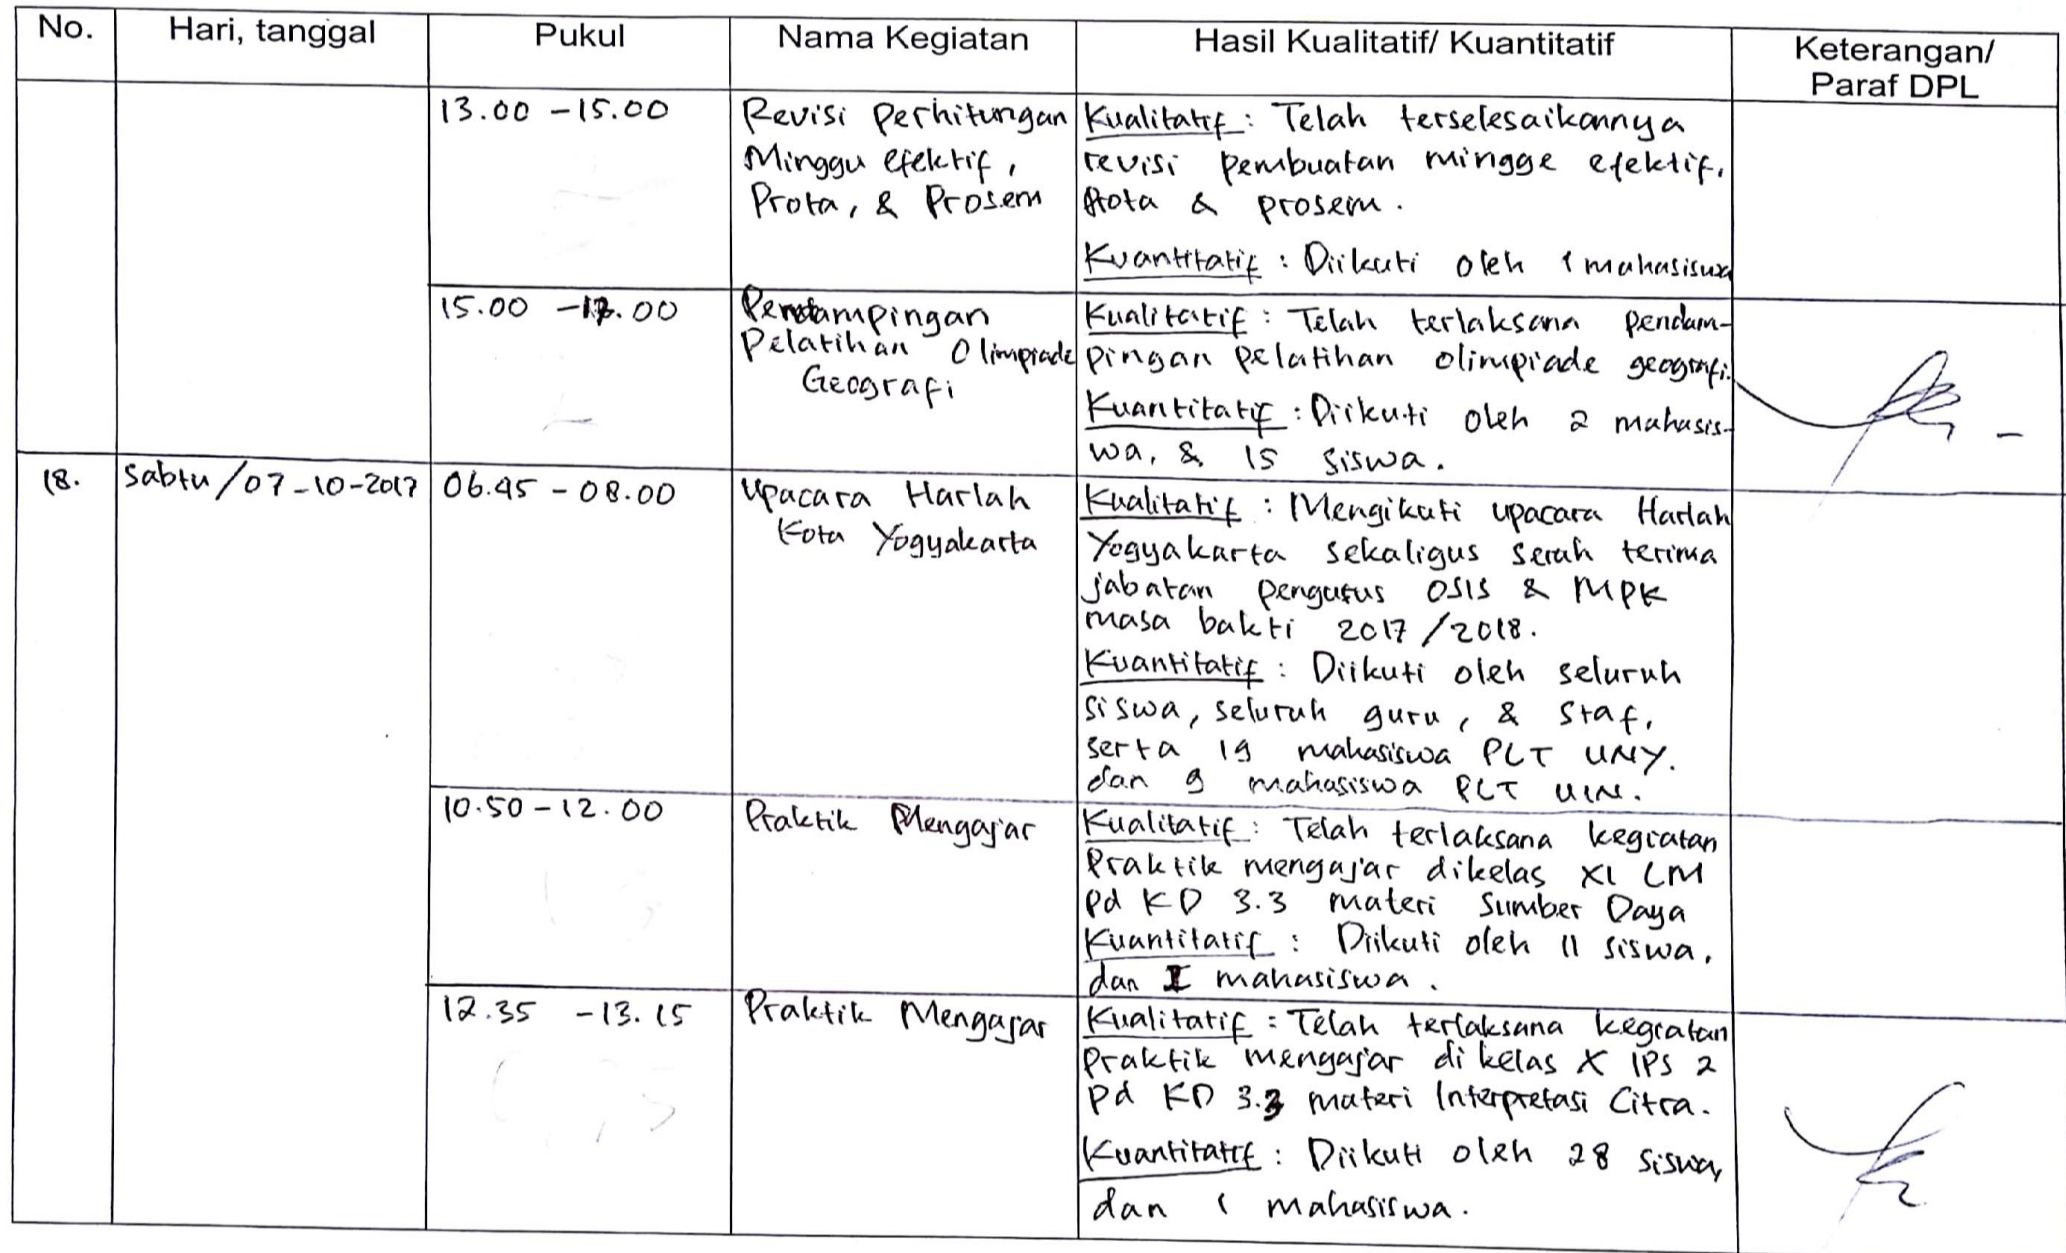 No. Hari, tanggal Pukul Nama Kegiatan Hasil Kualitatif/ Kuantitatif Keterangan/
Paraf DPL
13.00 - 15.00
Revisi Perhitungan
Minggu efektif,
Prota, & Prosem
Kualitatif : Telah terselesaikannya
revisi pembuatan mingge efektif,
Prota & prosem.
Kuantitatif : Diikuti oleh 1 mahasiswa
15.00 - 17.00
Pendampingan
Pelatihan Olimpiade
Geografi
Kualitatif : Telah terlaksana pendam-
pingan pelatihan olimpiade geografi.
Kuantitatif : Diikuti oleh 2 mahasis-
wa, & 15 siswa.
18. Sabtu/07-10-2017 06.45 - 08.00
Upacara Harlah
Kota Yogyakarta
Kualitatif : Mengikuti upacara Harlah
Yogyakarta sekaligus serah terima
jabatan pengurus OSIS & MPK
masa bakti 2017/2018.
Kuantitatif : Diikuti oleh seluruh
siswa, seluruh guru, & staf,
serta 19 mahasiswa PLT UNY.
dan 9 mahasiswa PLT UIN.
10.50 - 12.00
Praktik Mengajar
Kualitatif : Telah terlaksana kegiatan
Praktik mengajar dikelas XI LM
pd KD 3.3 materi Sumber Daya
Kuantitatif : Diikuti oleh 11 siswa,
dan 1 mahasiswa.
12.35 - 13.15
Praktik Mengajar
Kualitatif : Telah terlaksana kegiatan
praktik mengajar di kelas X IPS 2
pd KD 3.3 materi Interpretasi Citra.
Kuantitatif : Diikuti oleh 28 siswa,
dan 1 mahasiswa.